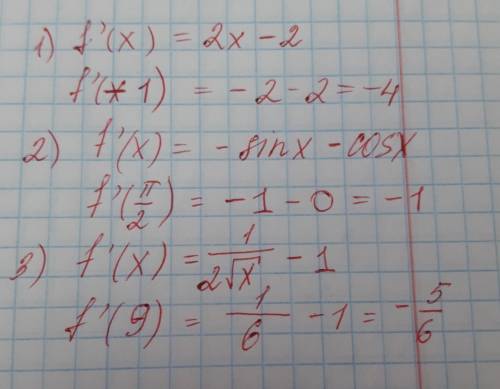 1) f'(x) = 2x - 2
f'(-1) = -2 - 2 = -4
2) f'(x) = -sinx - cosx
f'(π/2) = -1 - 0 = -1
3) f'(x) = 1/(2√x) - 1
f'(9) = 1/6 - 1 = -5/6